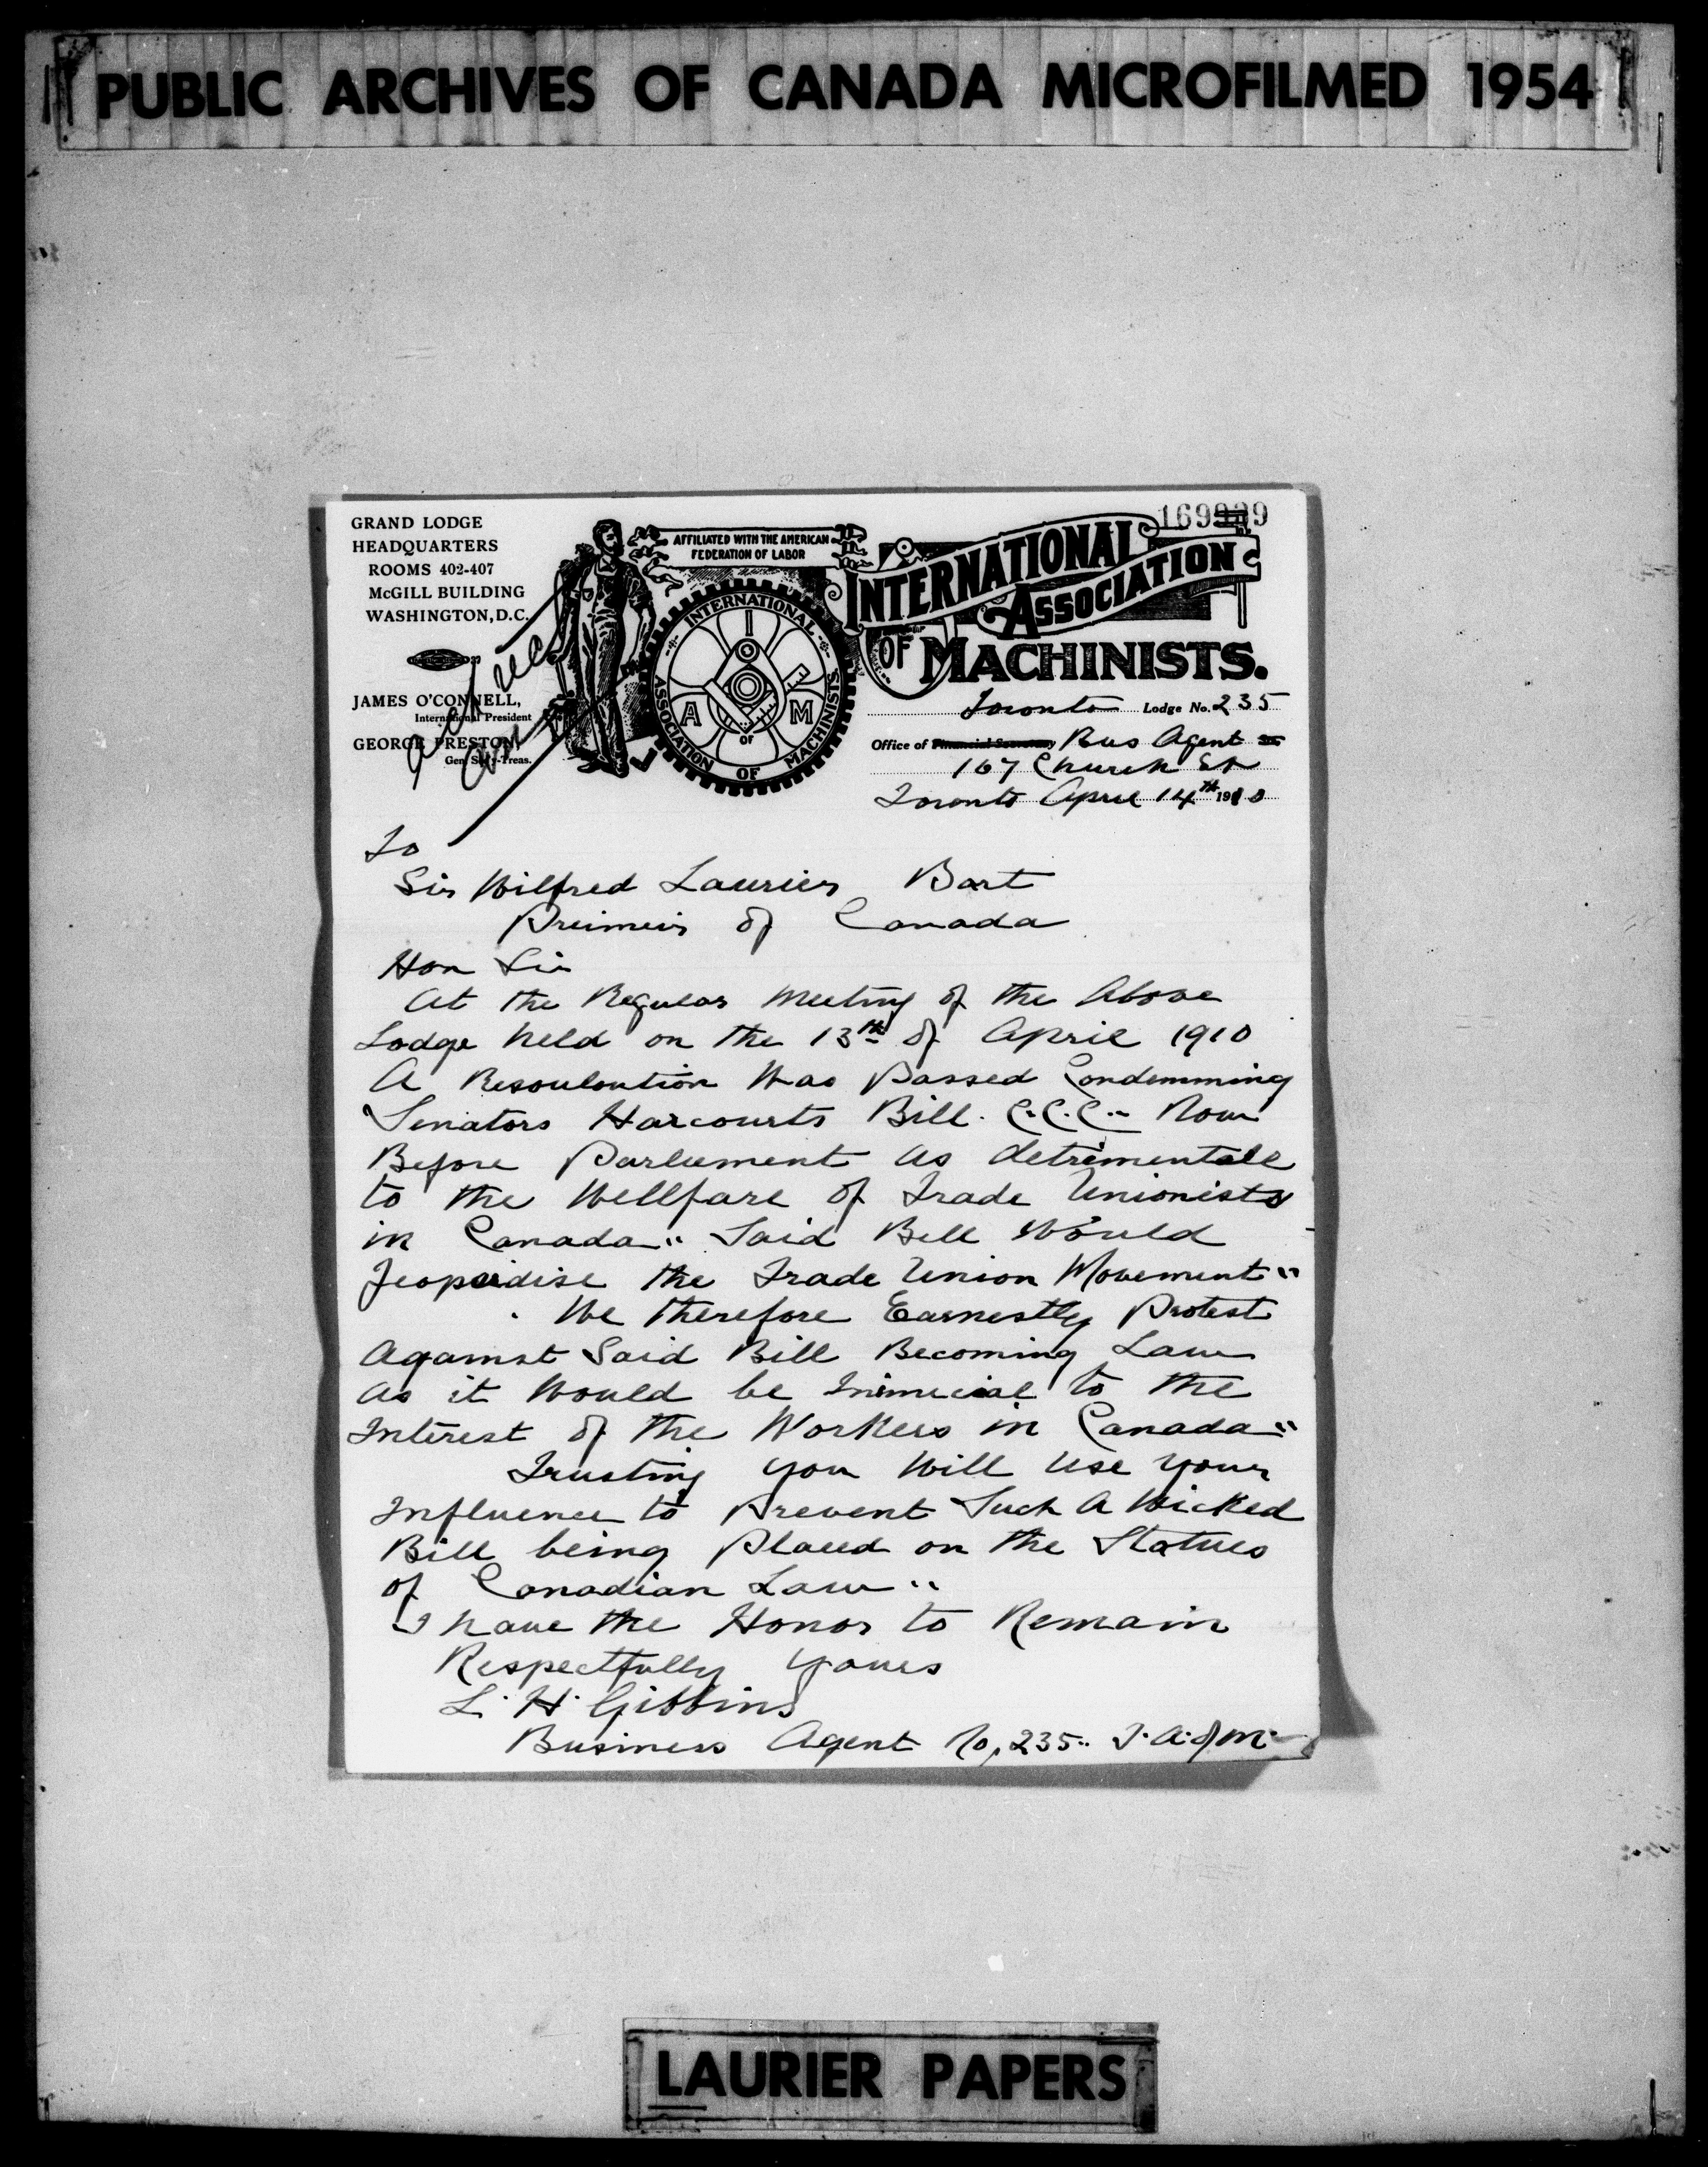 PUBLIC ARCHIVES OF CANADA MICROFILMED 1954
GRAND LODGE
HEADQUARTERS
ROOMS 402-407
McGILL BUILDING
WASHINGTON, D.C.
JAMES O'CONNELL,
International President
GEORGE PRESTON,
Gen. Sec'y-Treas.
AFFILIATED WITH THE AMERICAN
FEDERATION OF LABOR
INTERNATIONAL
ASSOCIATION OF MACHINISTS
I
A OF M
INTERNATIONAL
ASSOCIATION
OF MACHINISTS.
Toronto Lodge No. 235
Office of Financial Secretary Bus Agent
167 Church St
Toronto April 14th 1910
To
Sir Wilfred Laurier Bart
Preimeir of Canada
Hon Sir
At the Regular Meeting of the Above
Lodge held on the 13th of April 1910
A Resouloution Was Passed Condemming
Senators Harcourts Bill. C.C.C.. Now
Before Parliement as detrimentall
to the Wellfare of Trade Unionists
in Canada" Said Bill Would
Jeopardise the Trade Union Movement"
We therefore Earnestly Protest
Against Said Bill Becoming Law
as it Would be Inimicial to the
Interest of the Workers in Canada"
Trusting you Will Use your
Influence to Prevent Such A Wicked
Bill being Placed on the Statues
of Canadian Law"
I have the Honor to Remain
Respectfully Yours
L. H. Gibbins
Business Agent No, 235.. I.A. of M.
LAURIER PAPERS